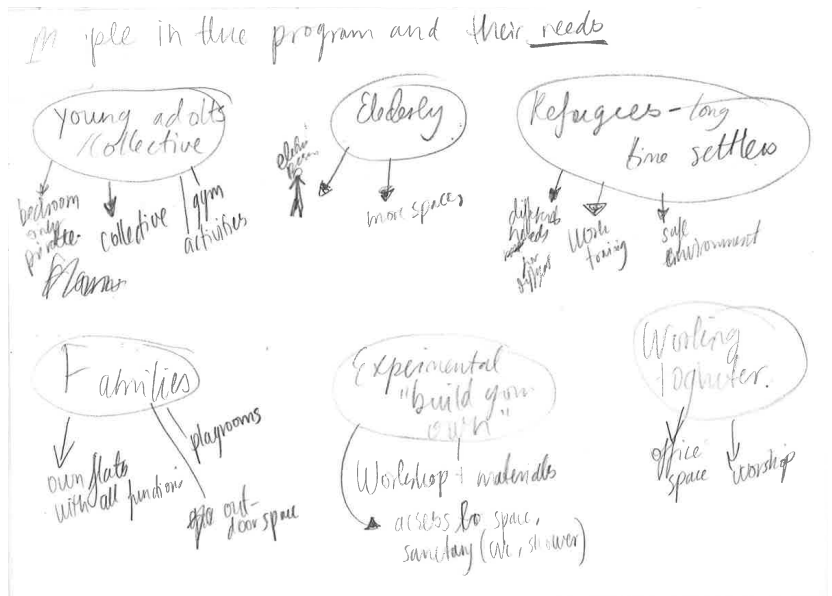 ple in the program and their needs
Young adolts
/Collective
bedroom
only
private
collective
gym
activities
Elederly
more space,
Refugees - long
time settlers
different
needs
for
work
safe
environment
Families
own flats
with all function
playrooms
out-
door space
Experimental
"build your
own"
Workshop + materials
access to space,
sanetary (wc, shower)
Working
togheter.
office
space
worshop